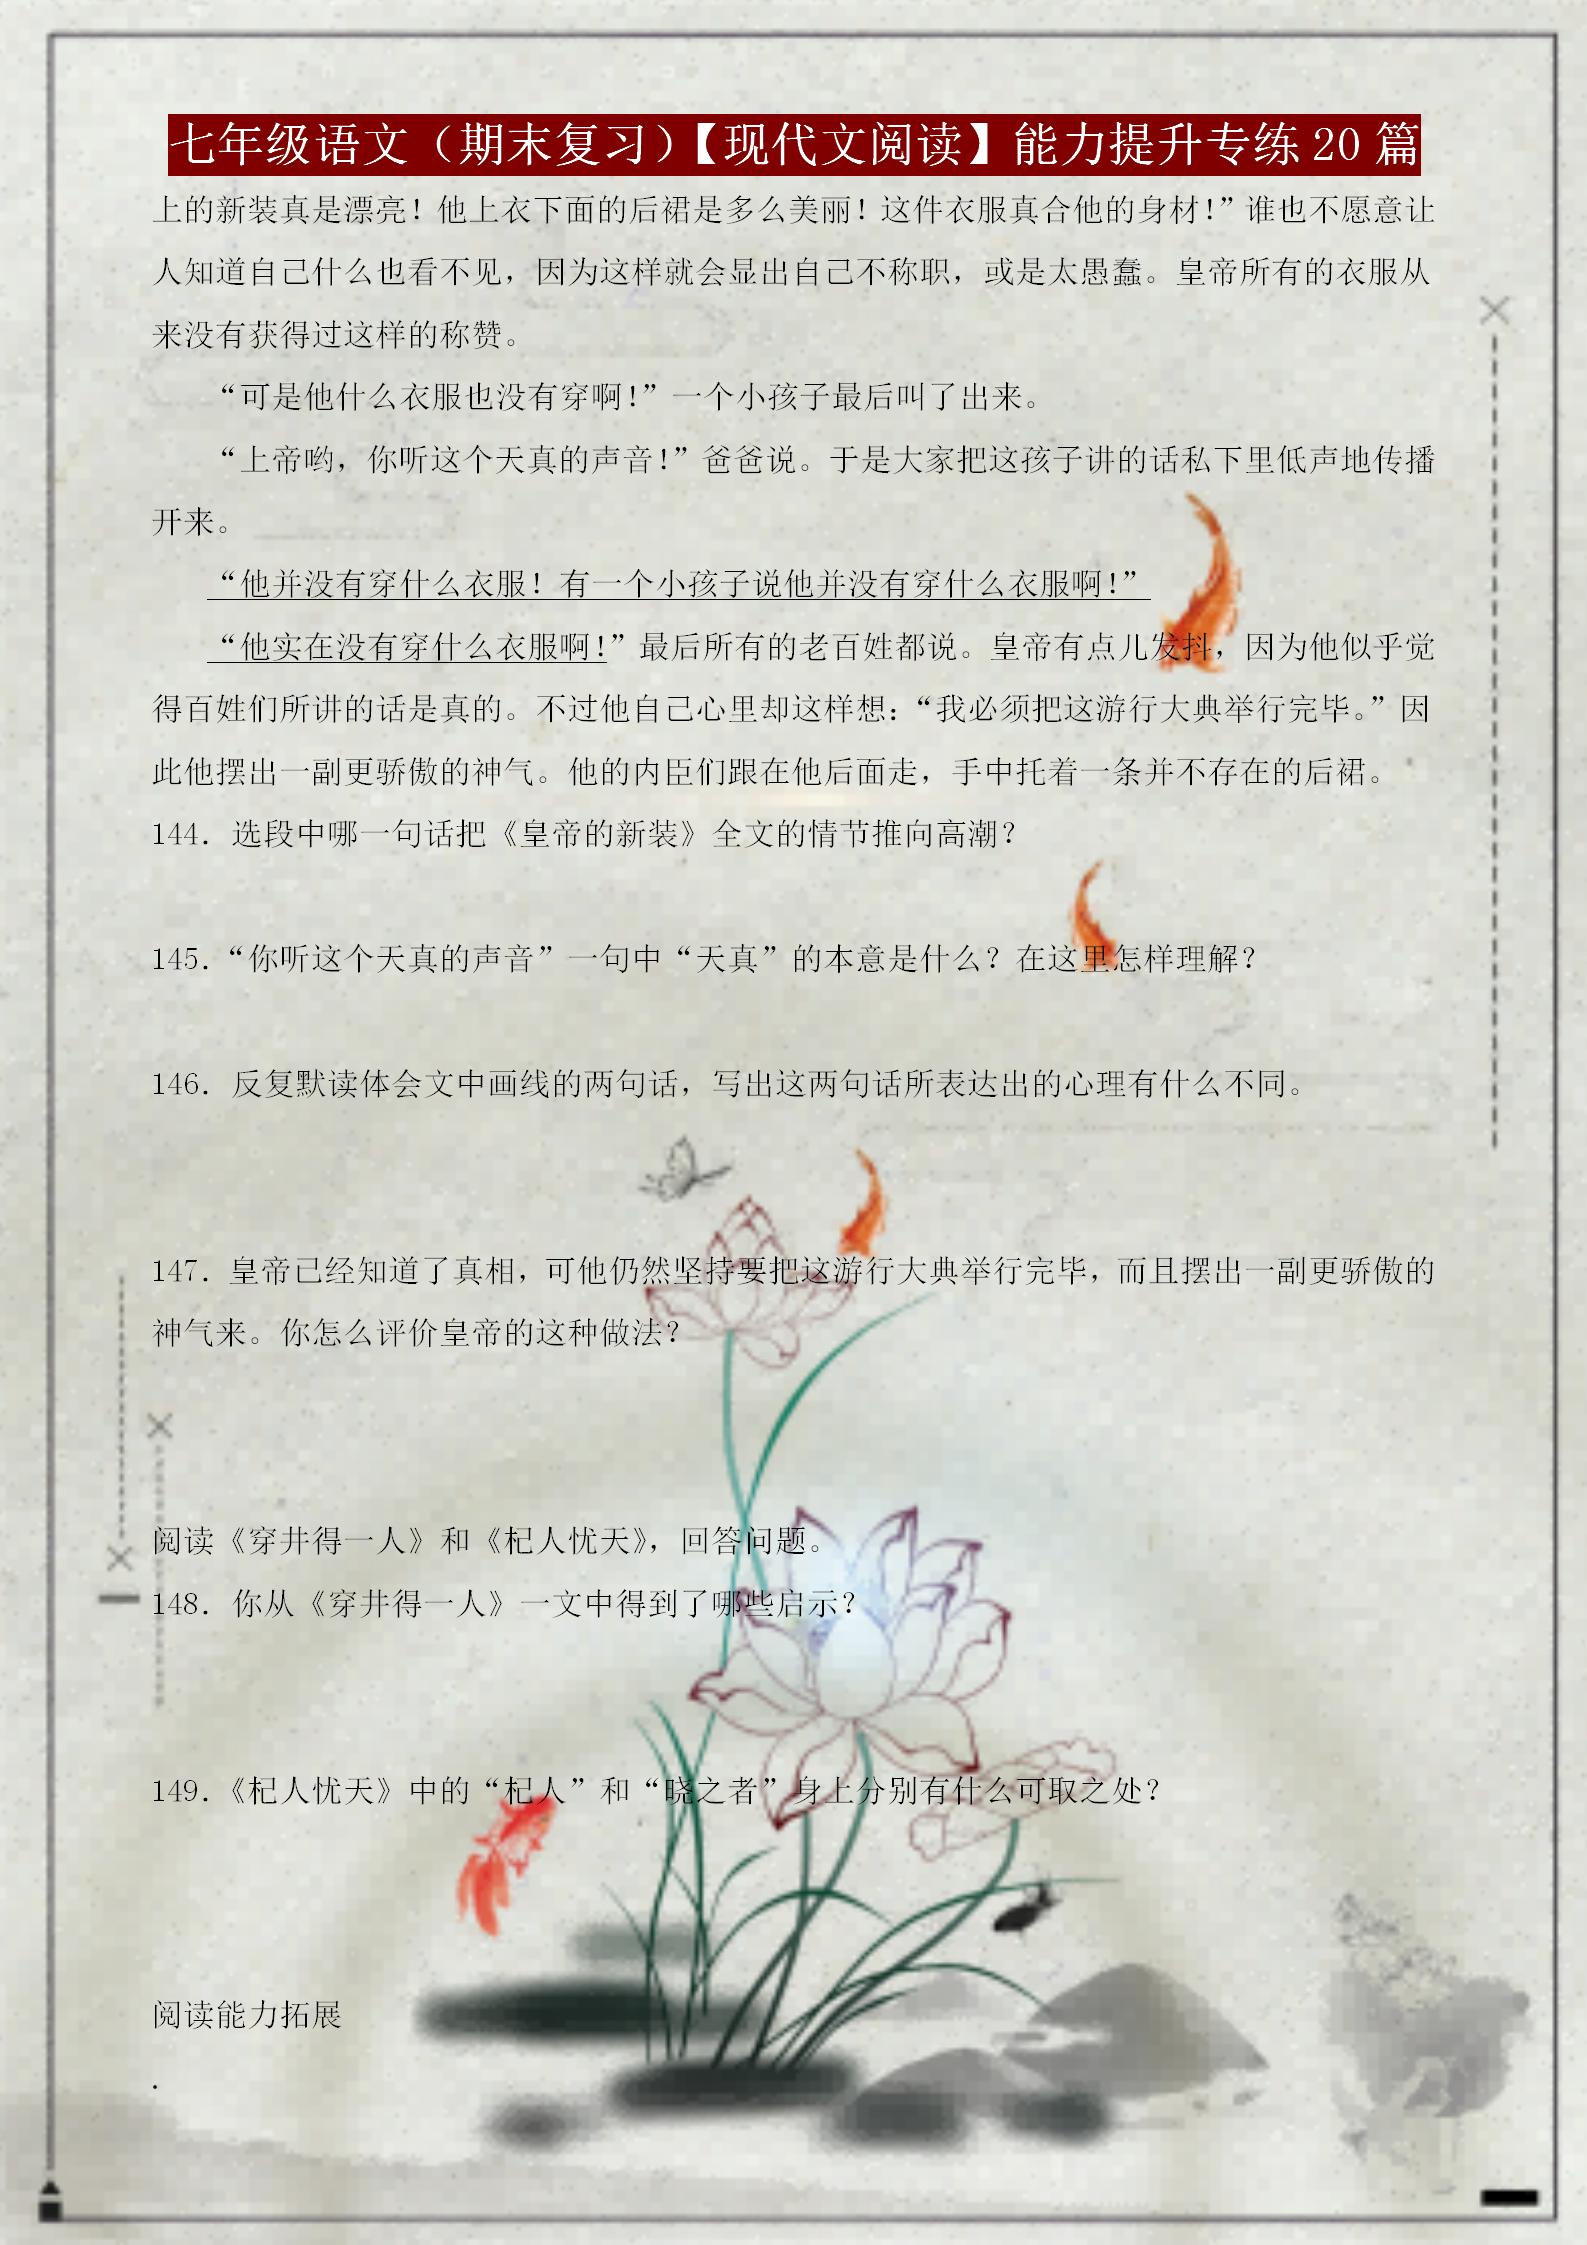 七年级语文（期末复习）【现代文阅读】能力提升专练 20 篇
上的新装真是漂亮！他上衣下面的后裙是多么美丽！这件衣服真合他的身材！”谁也不愿意让
人知道自己什么也看不见，因为这样就会显出自己不称职，或是太愚蠢。皇帝所有的衣服从
来没有获得过这样的称赞。
“可是他什么衣服也没有穿啊！”一个小孩子最后叫了出来。
“上帝哟，你听这个天真的声音！”爸爸说。于是大家把这孩子讲的话私下里低声地传播
开来。
“他并没有穿什么衣服！有一个小孩子说他并没有穿什么衣服啊！”
“他实在没有穿什么衣服啊！”最后所有的老百姓都说。皇帝有点儿发抖，因为他似乎觉
得百姓们所讲的话是真的。不过他自己心里却这样想：“我必须把这游行大典举行完毕。”因
此他摆出一副更骄傲的神气。他的内臣们跟在他后面走，手中托着一条并不存在的后裙。
144．选段中哪一句话把《皇帝的新装》全文的情节推向高潮？
145．“你听这个天真的声音”一句中“天真”的本意是什么？在这里怎样理解？
146．反复默读体会文中画线的两句话，写出这两句话所表达出的心理有什么不同。
147．皇帝已经知道了真相，可他仍然坚持要把这游行大典举行完毕，而且摆出一副更骄傲的
神气来。你怎么评价皇帝的这种做法？
阅读《穿井得一人》和《杞人忧天》，回答问题。
148．你从《穿井得一人》一文中得到了哪些启示？
149．《杞人忧天》中的“杞人”和“晓之者”身上分别有什么可取之处？
阅读能力拓展
.